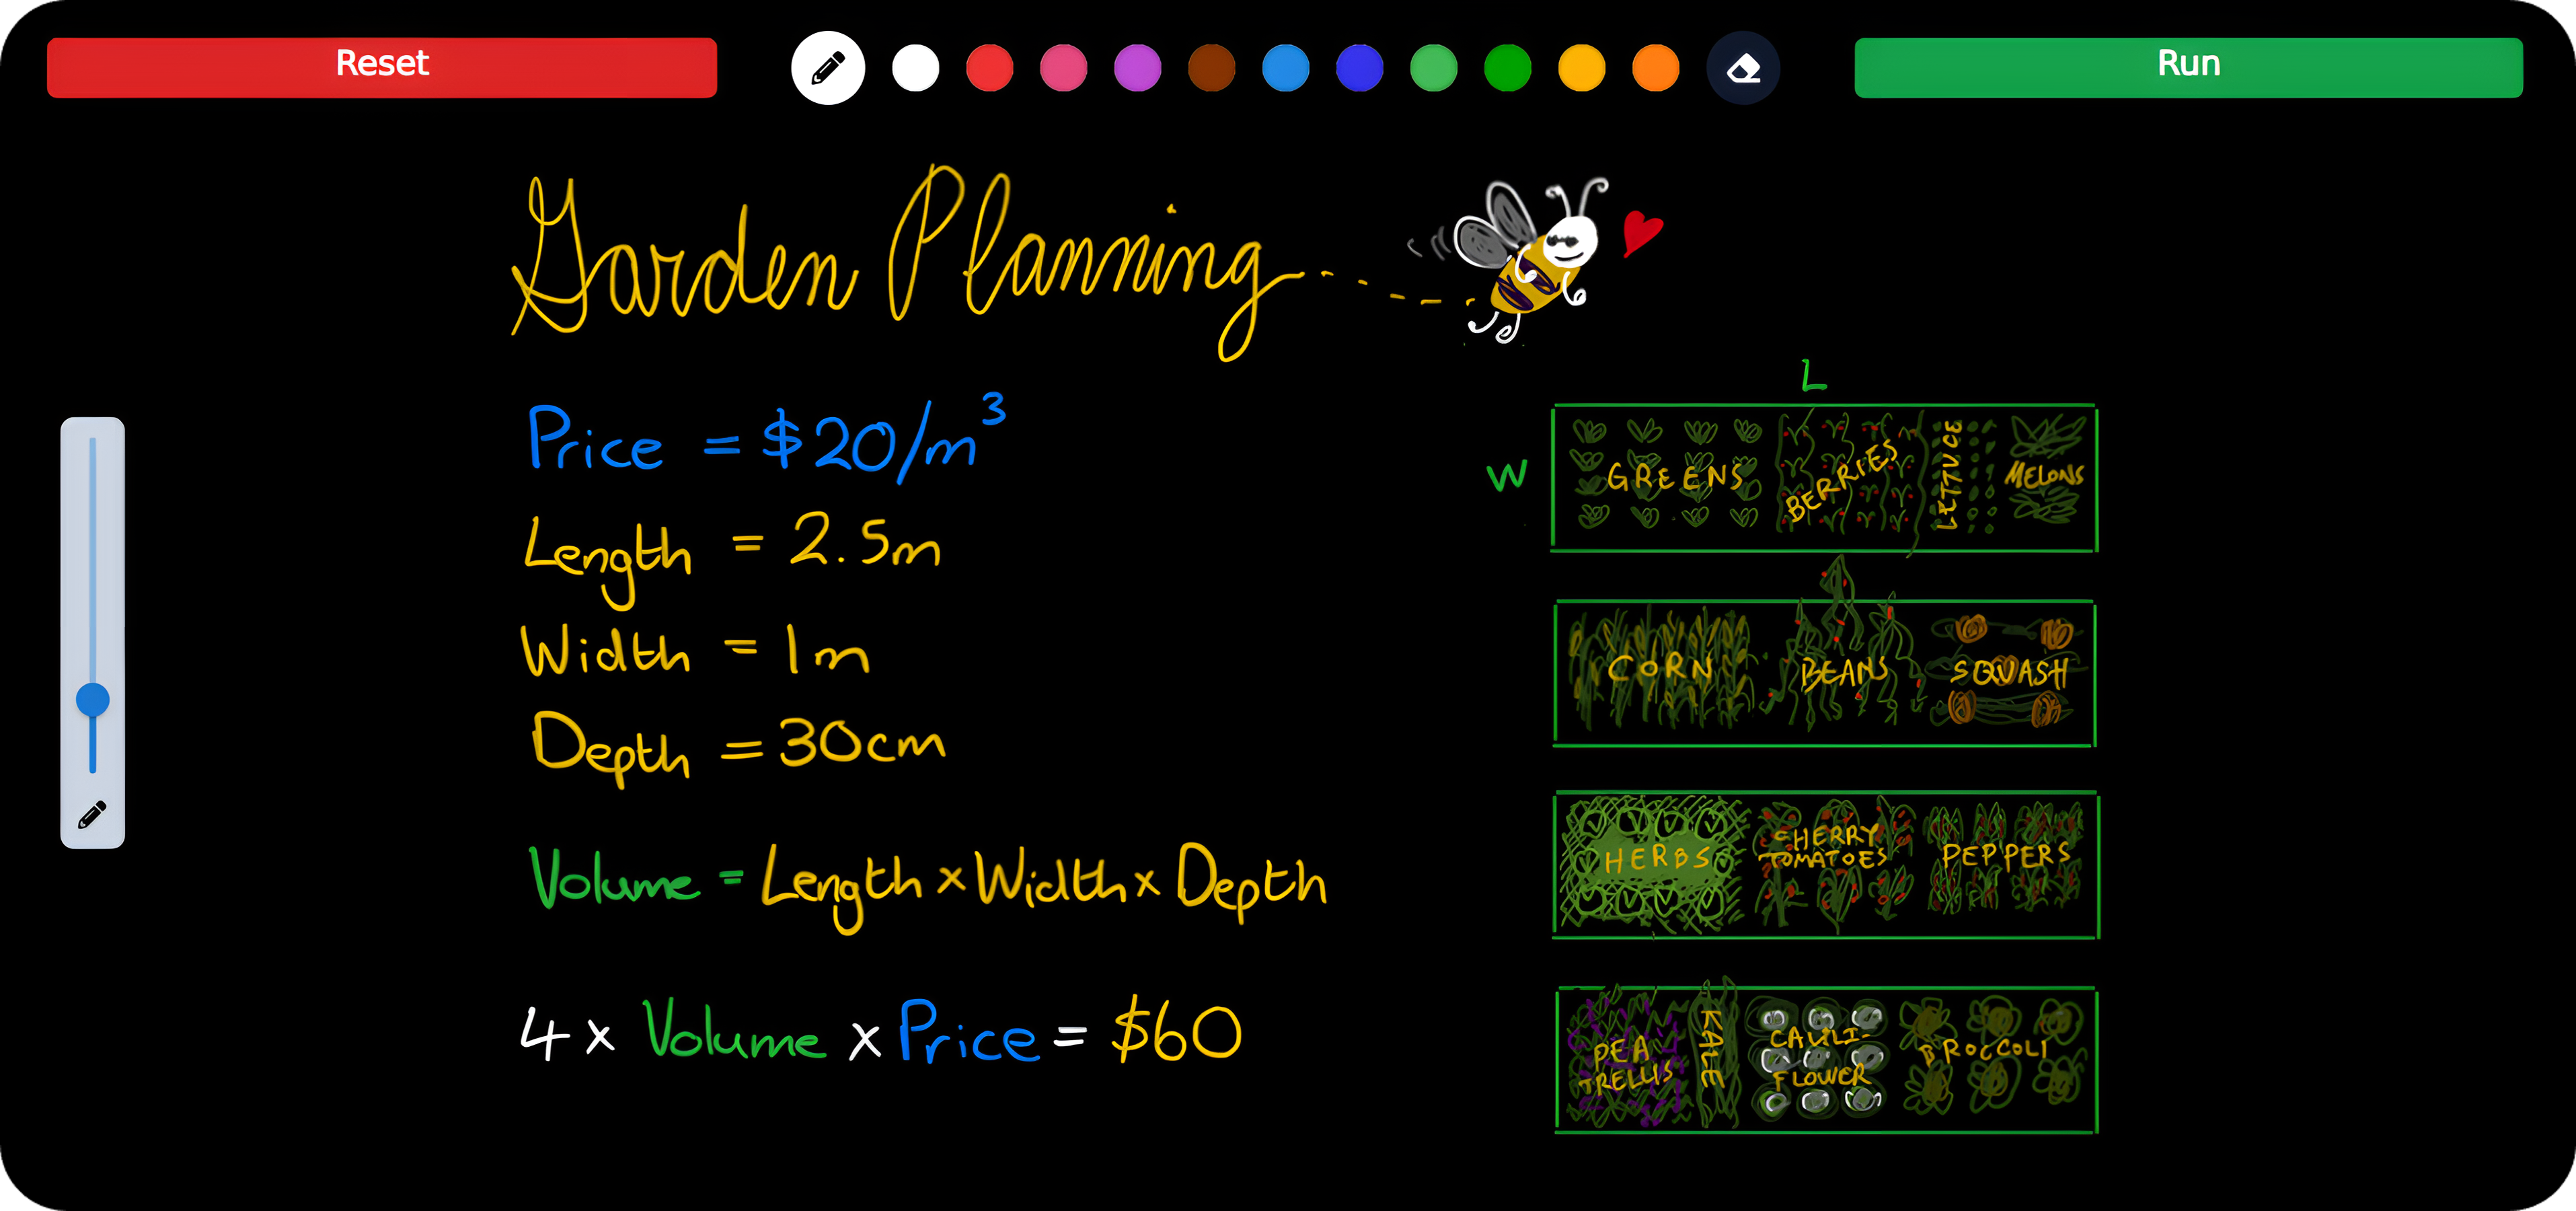 Reset
Run
Garden Planning
Price = $20/m³
Length = 2.5m
Width = 1m
Depth = 30cm
Volume = Length × Width × Depth
4 × Volume × Price = $60
L
W
GREENS
BERRIES
LETTUCE
MELONS
CORN
BEANS
SQUASH
HERBS
CHERRY
TOMATOES
PEPPERS
PEA
TRELLIS
KALE
CAULI-
FLOWER
BROCCOLI